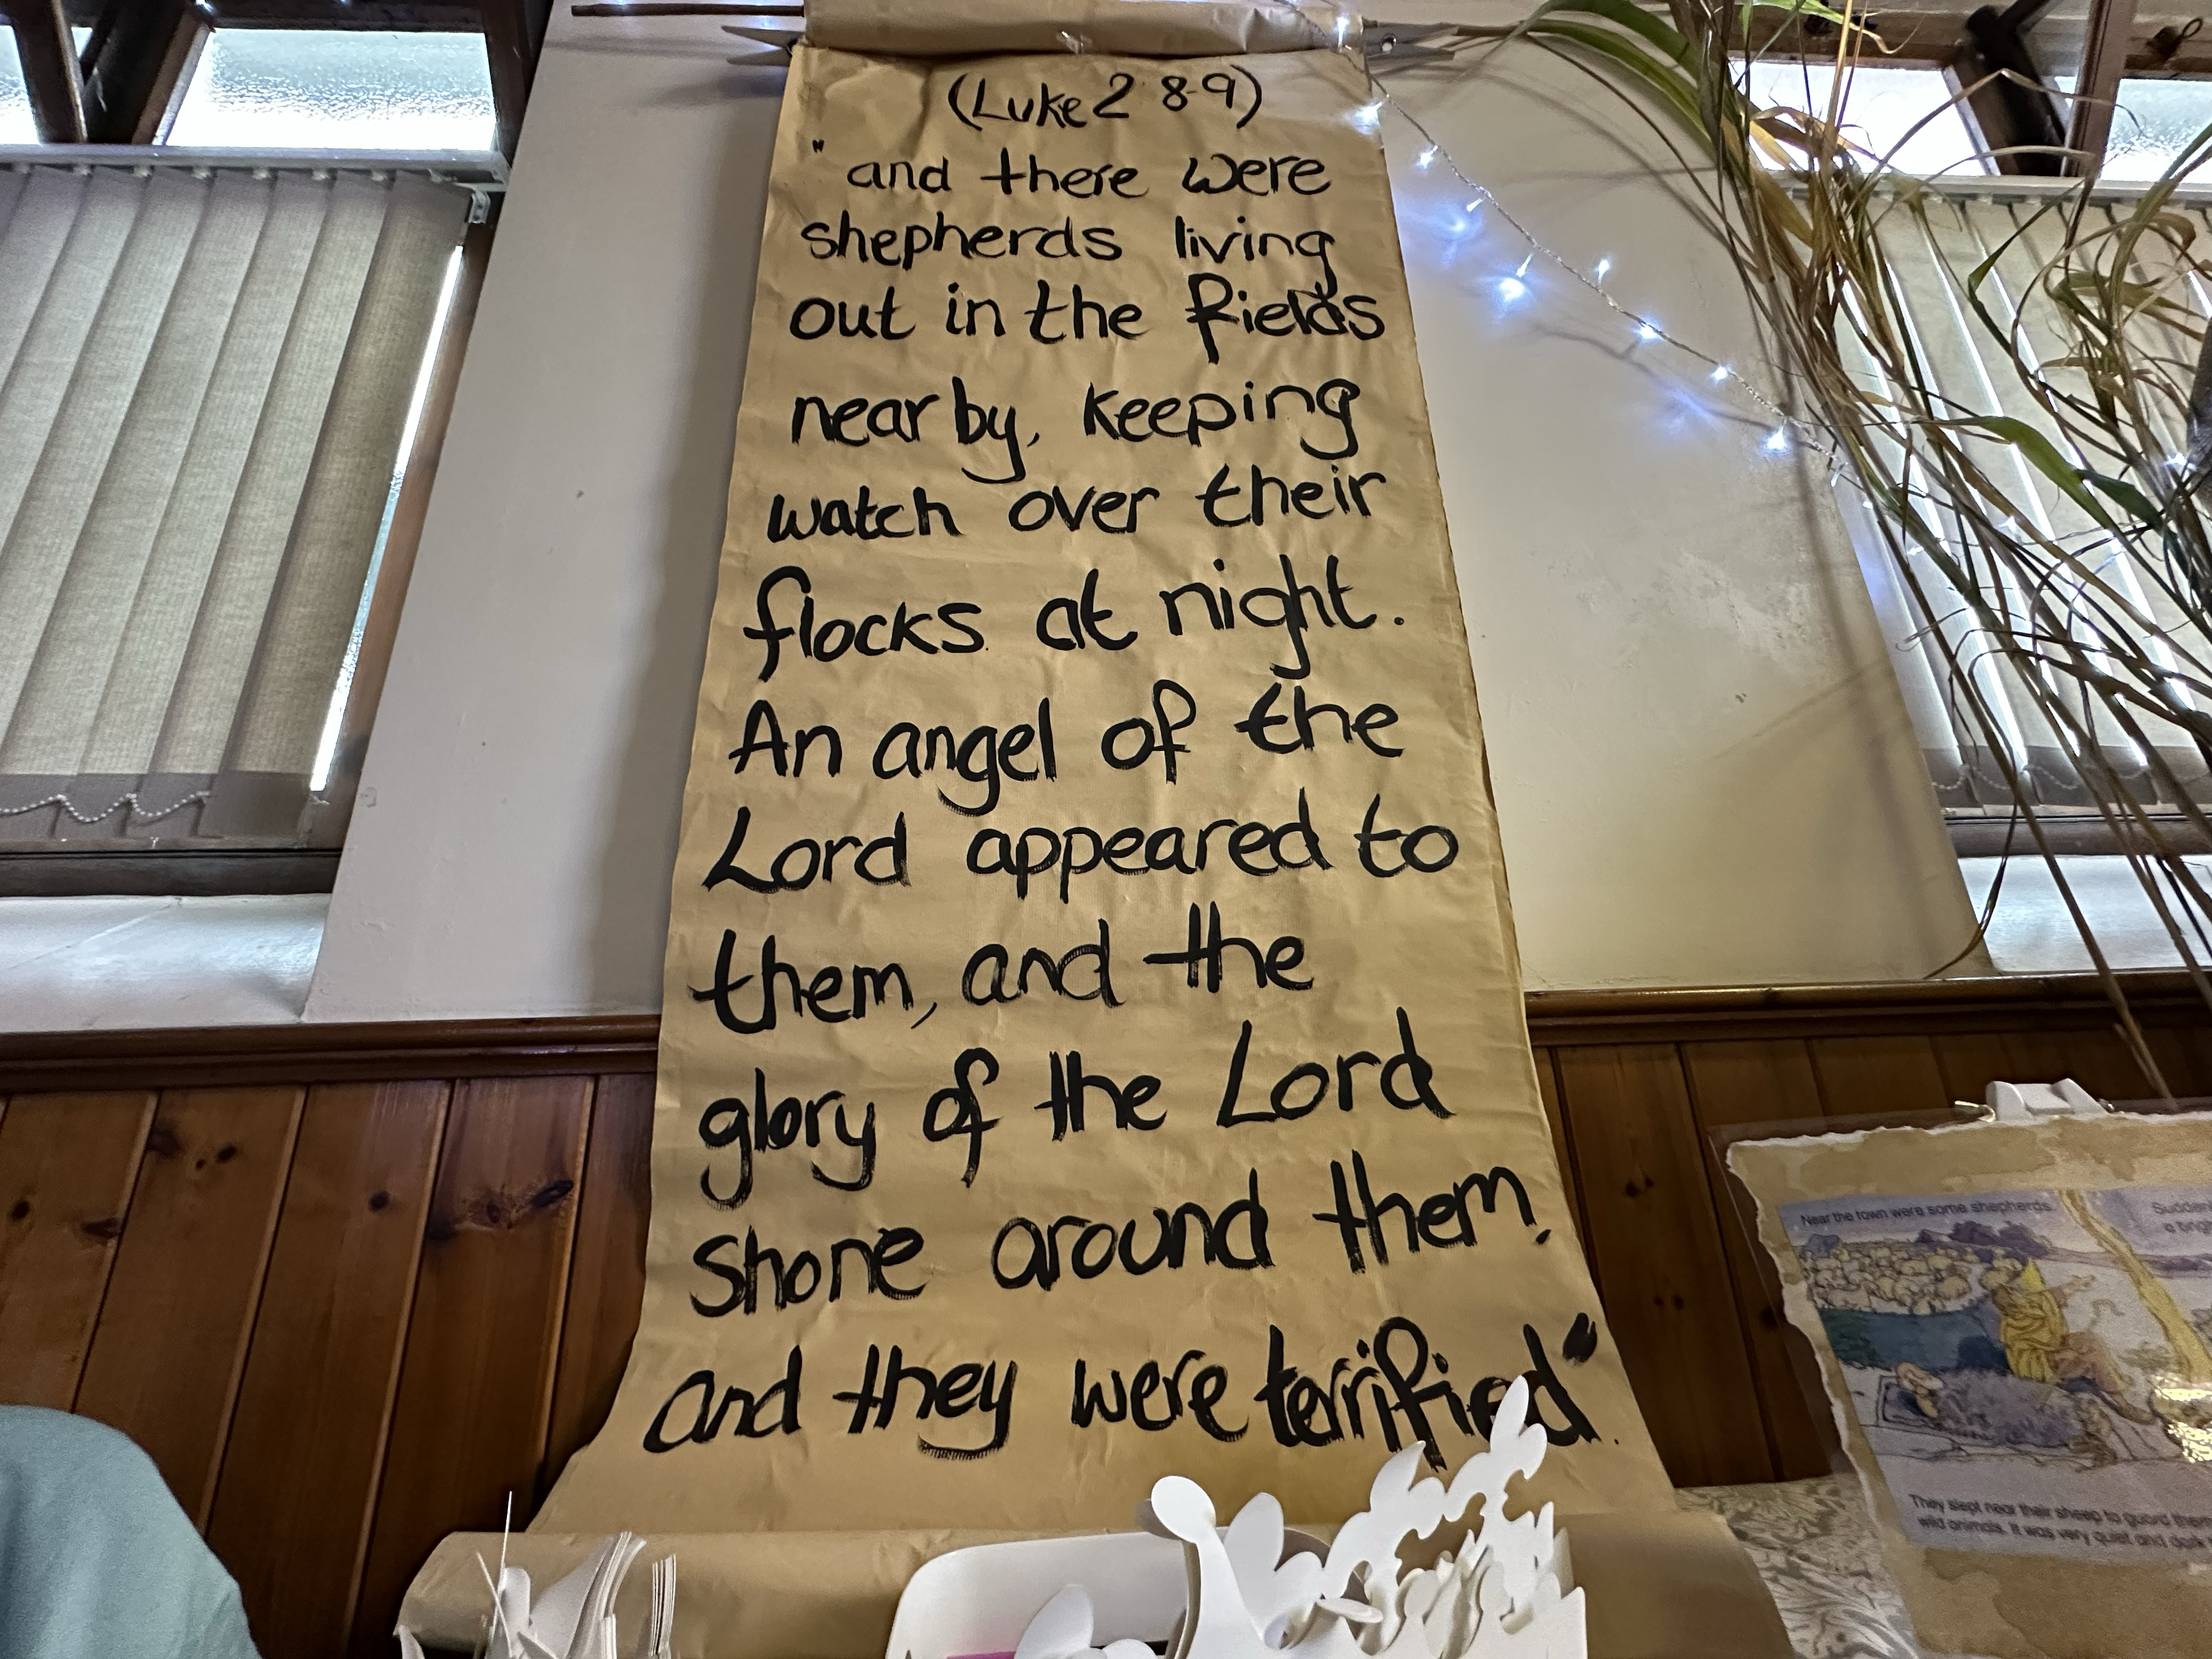 (Luke 2 8-9)
"and there were
shepherds living
out in the fields
near by, keeping
watch over their
flocks at night.
An angel of the
Lord appeared to
them, and the
glory of the Lord
shone around them,
and they were terrified".
Near the town were some shepherds.
They slept near their sheep to guard
wild animals. It was very quiet and